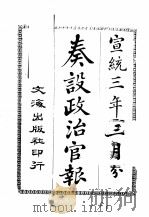 宣統三年三月分
奏設政治官報
文海出版社印行